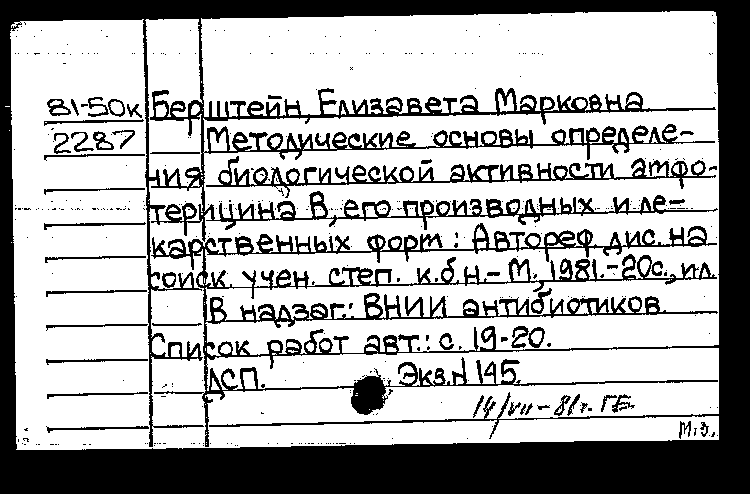 81-50к Берштейн, Елизавета Марковна
2287 Методические основы определе-
ния биологической активности амфо-
терицина В, его производных и ле-
карственных форм: Автореф. дис. на
соиск. учен. степ. к.б.н.-М., 1981.-20с., ил.
В надзаг.: ВНИИ антибиотиков.
Список работ авт.: с. 19-20.
ДСП. Экз.N 145.
14/VII-81г. ГБ.
М.З.